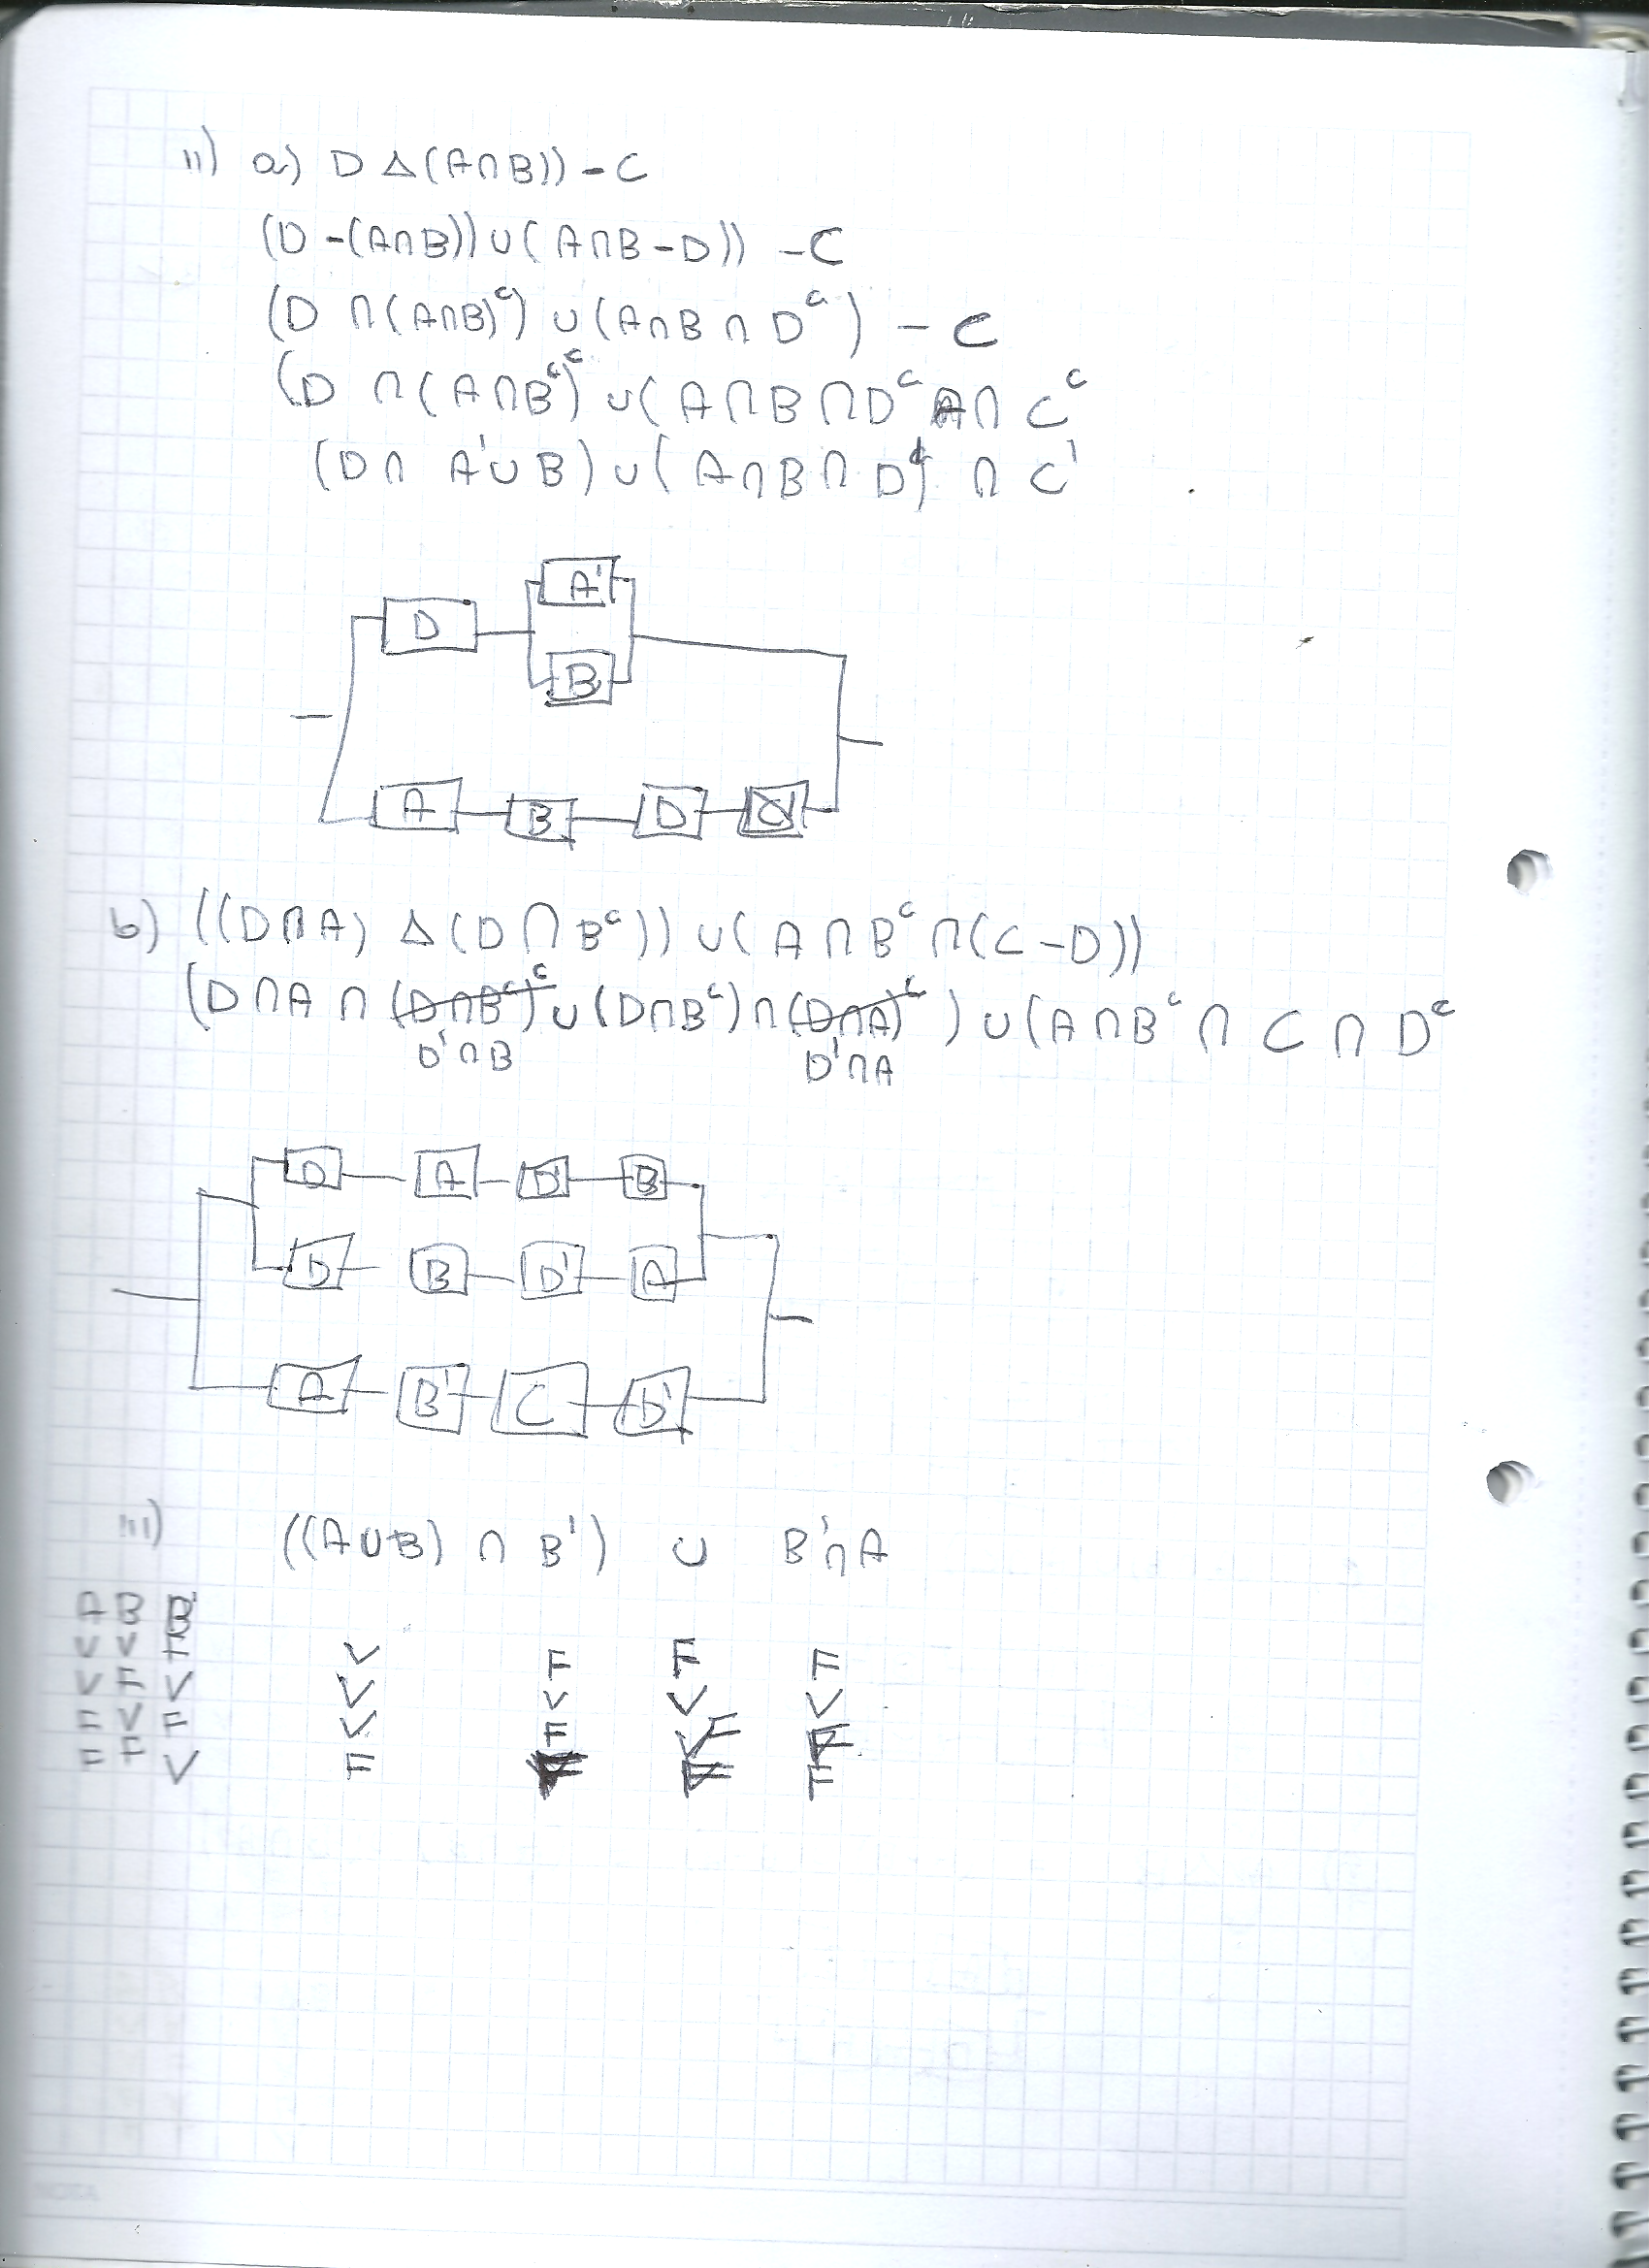 11) a) D Δ (A∩B)) - C
(D - (A∩B)) ∪ (A∩B - D)) - C
(D ∩ (A∩B)ᶜ) ∪ (A∩B ∩ Dᶜ) - C
(D ∩ (A∩Bᶜ)ᶜ ∪ (A∩B∩Dᶜ ∩ Cᶜ
(D∩ A'∪B) ∪ (A∩B∩ D' ∩ C'
A'
D
B
A B D C'
b) ((D∩A) Δ (D∩Bᶜ)) ∪ (A∩Bᶜ∩(C-D))
(D∩A ∩ (D∩Bᶜ)ᶜ ∪ (D∩Bᶜ) ∩ (D∩A)ᶜ ) ∪ (A∩Bᶜ ∩ C ∩ Dᶜ
D'∩B D'∩A
D A D' B
D B D' A
A B' C D'
111) ((A∪B) ∩ B') ∪ B'∩A
A B B'
V V F V F F F
V F V V V V V
F V F V F F F
F F V F F F F
NOTA